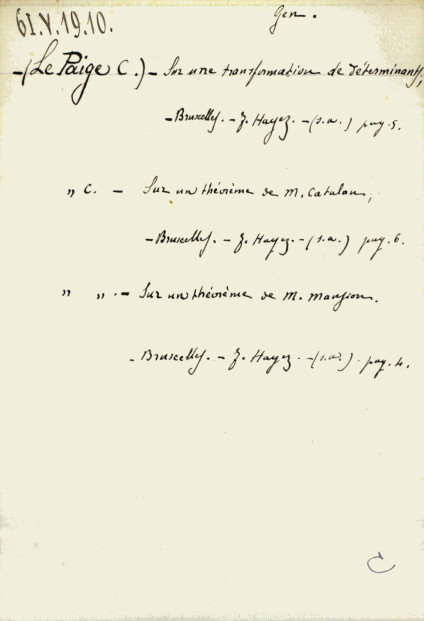 61.V.19.10.
Gen.
-(Le Paige C.)- Sur une transformation de déterminants;
-Bruxelles. - F. Hayez. -(s.a.) pag. 5.
" C. - Sur un théorème de M. Catalan;
-Bruxelles. - F. Hayez. -(s.a.) pag. 6.
" " .- Sur un théorème de M. Mansion.
- Bruxelles. - F. Hayez. -(s.a.). pag. 4.
C